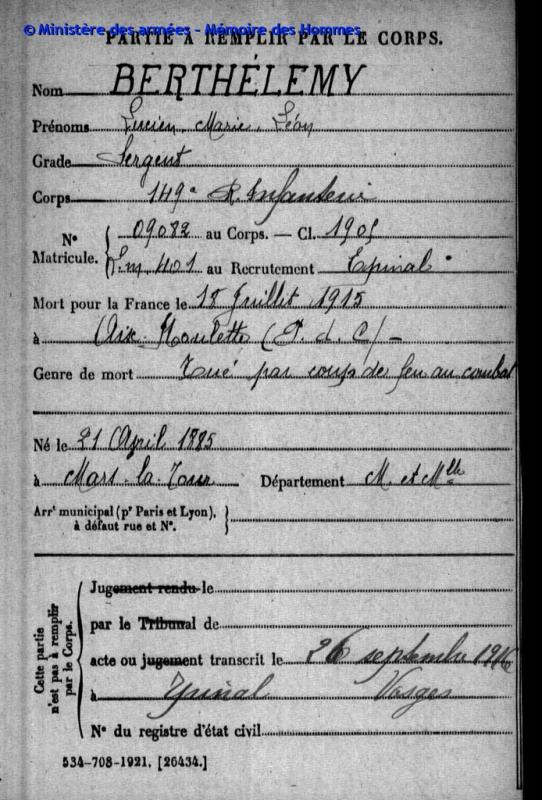 © Ministère des armées - Mémoire des Hommes
PARTIE À REMPLIR PAR LE CORPS.
Nom BERTHÉLEMY
Prénoms Lucien Marie Léon
Grade Sergent
Corps 149e R. Infanterie
N° Matricule. { 09082 au Corps. — Cl. 1905
401 au Recrutement Epinal
Mort pour la France le 18 Juillet 1915
à Aix-Noulette (P. d. C) -
Genre de mort Tué par coups de feu au combat
Né le 21 April 1885
à Mars-la-Tour Département M. et Mlle
Arrt municipal (pr Paris et Lyon), à défaut rue et N°. }
Cette partie n'est pas à remplir par le Corps. { Jugement rendu le
par le Tribunal de
acte ou jugement transcrit le 26 septembre 1916
à Epinal Vosges
N° du registre d'état civil
534-708-1921. [26434.]